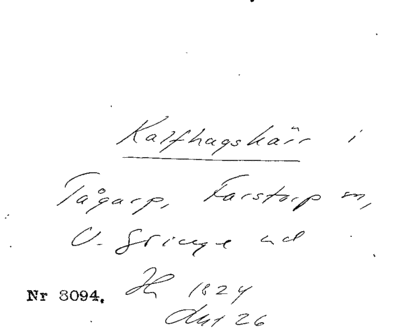 Kalfhagskärr i
Tågarp, Farstorp sn,
V. Göinge hd
Nr 3094. Hn 1824
Akt 26